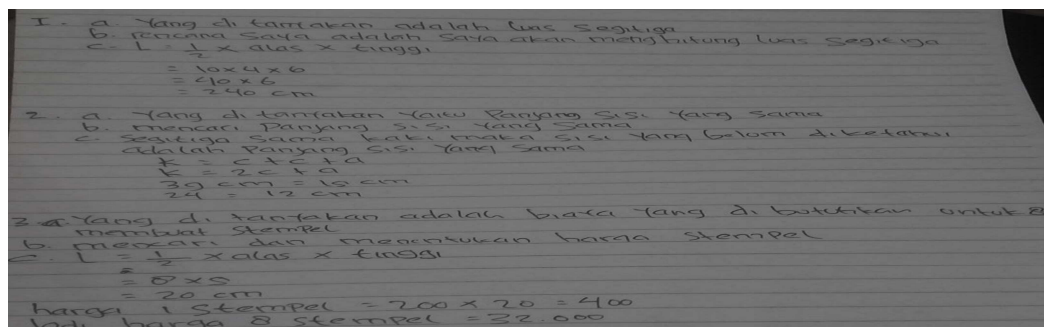 I. a. Yang di tanyakan adalah luas segitiga
b. rencana saya adalah saya akan menghitung luas segitiga
c. L = 1/2 x alas x tinggi
= 10 x 4 x 6
= 40 x 6
= 240 cm
2. a. Yang di tanyakan yaitu Panjang sisi yang sama
b. mencari Panjang sisi yang sama
c. segitiga sama kaki, maka sisi yang belom diketahui
adalah Panjang sisi yang sama
k = c + c + a
k = 2c + a
39 cm = 15 cm
24 = 12 cm
3 a. Yang di tanyakan adalah biaya yang di butuhkan untuk 8
membuat stempel
b. mencari dan menentukan harga stempel
c. L = 1/2 x alas x tinggi
=
= 8 x 5
= 20 cm
harga 1 stempel = 200 x 20 = 400
Jadi harga 8 stempel = 32.000